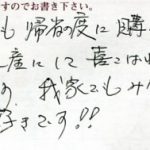 すのでお書き下さい。
も帰省の度に購
産にして喜こばれ
の。我家でもみん
好きです!!